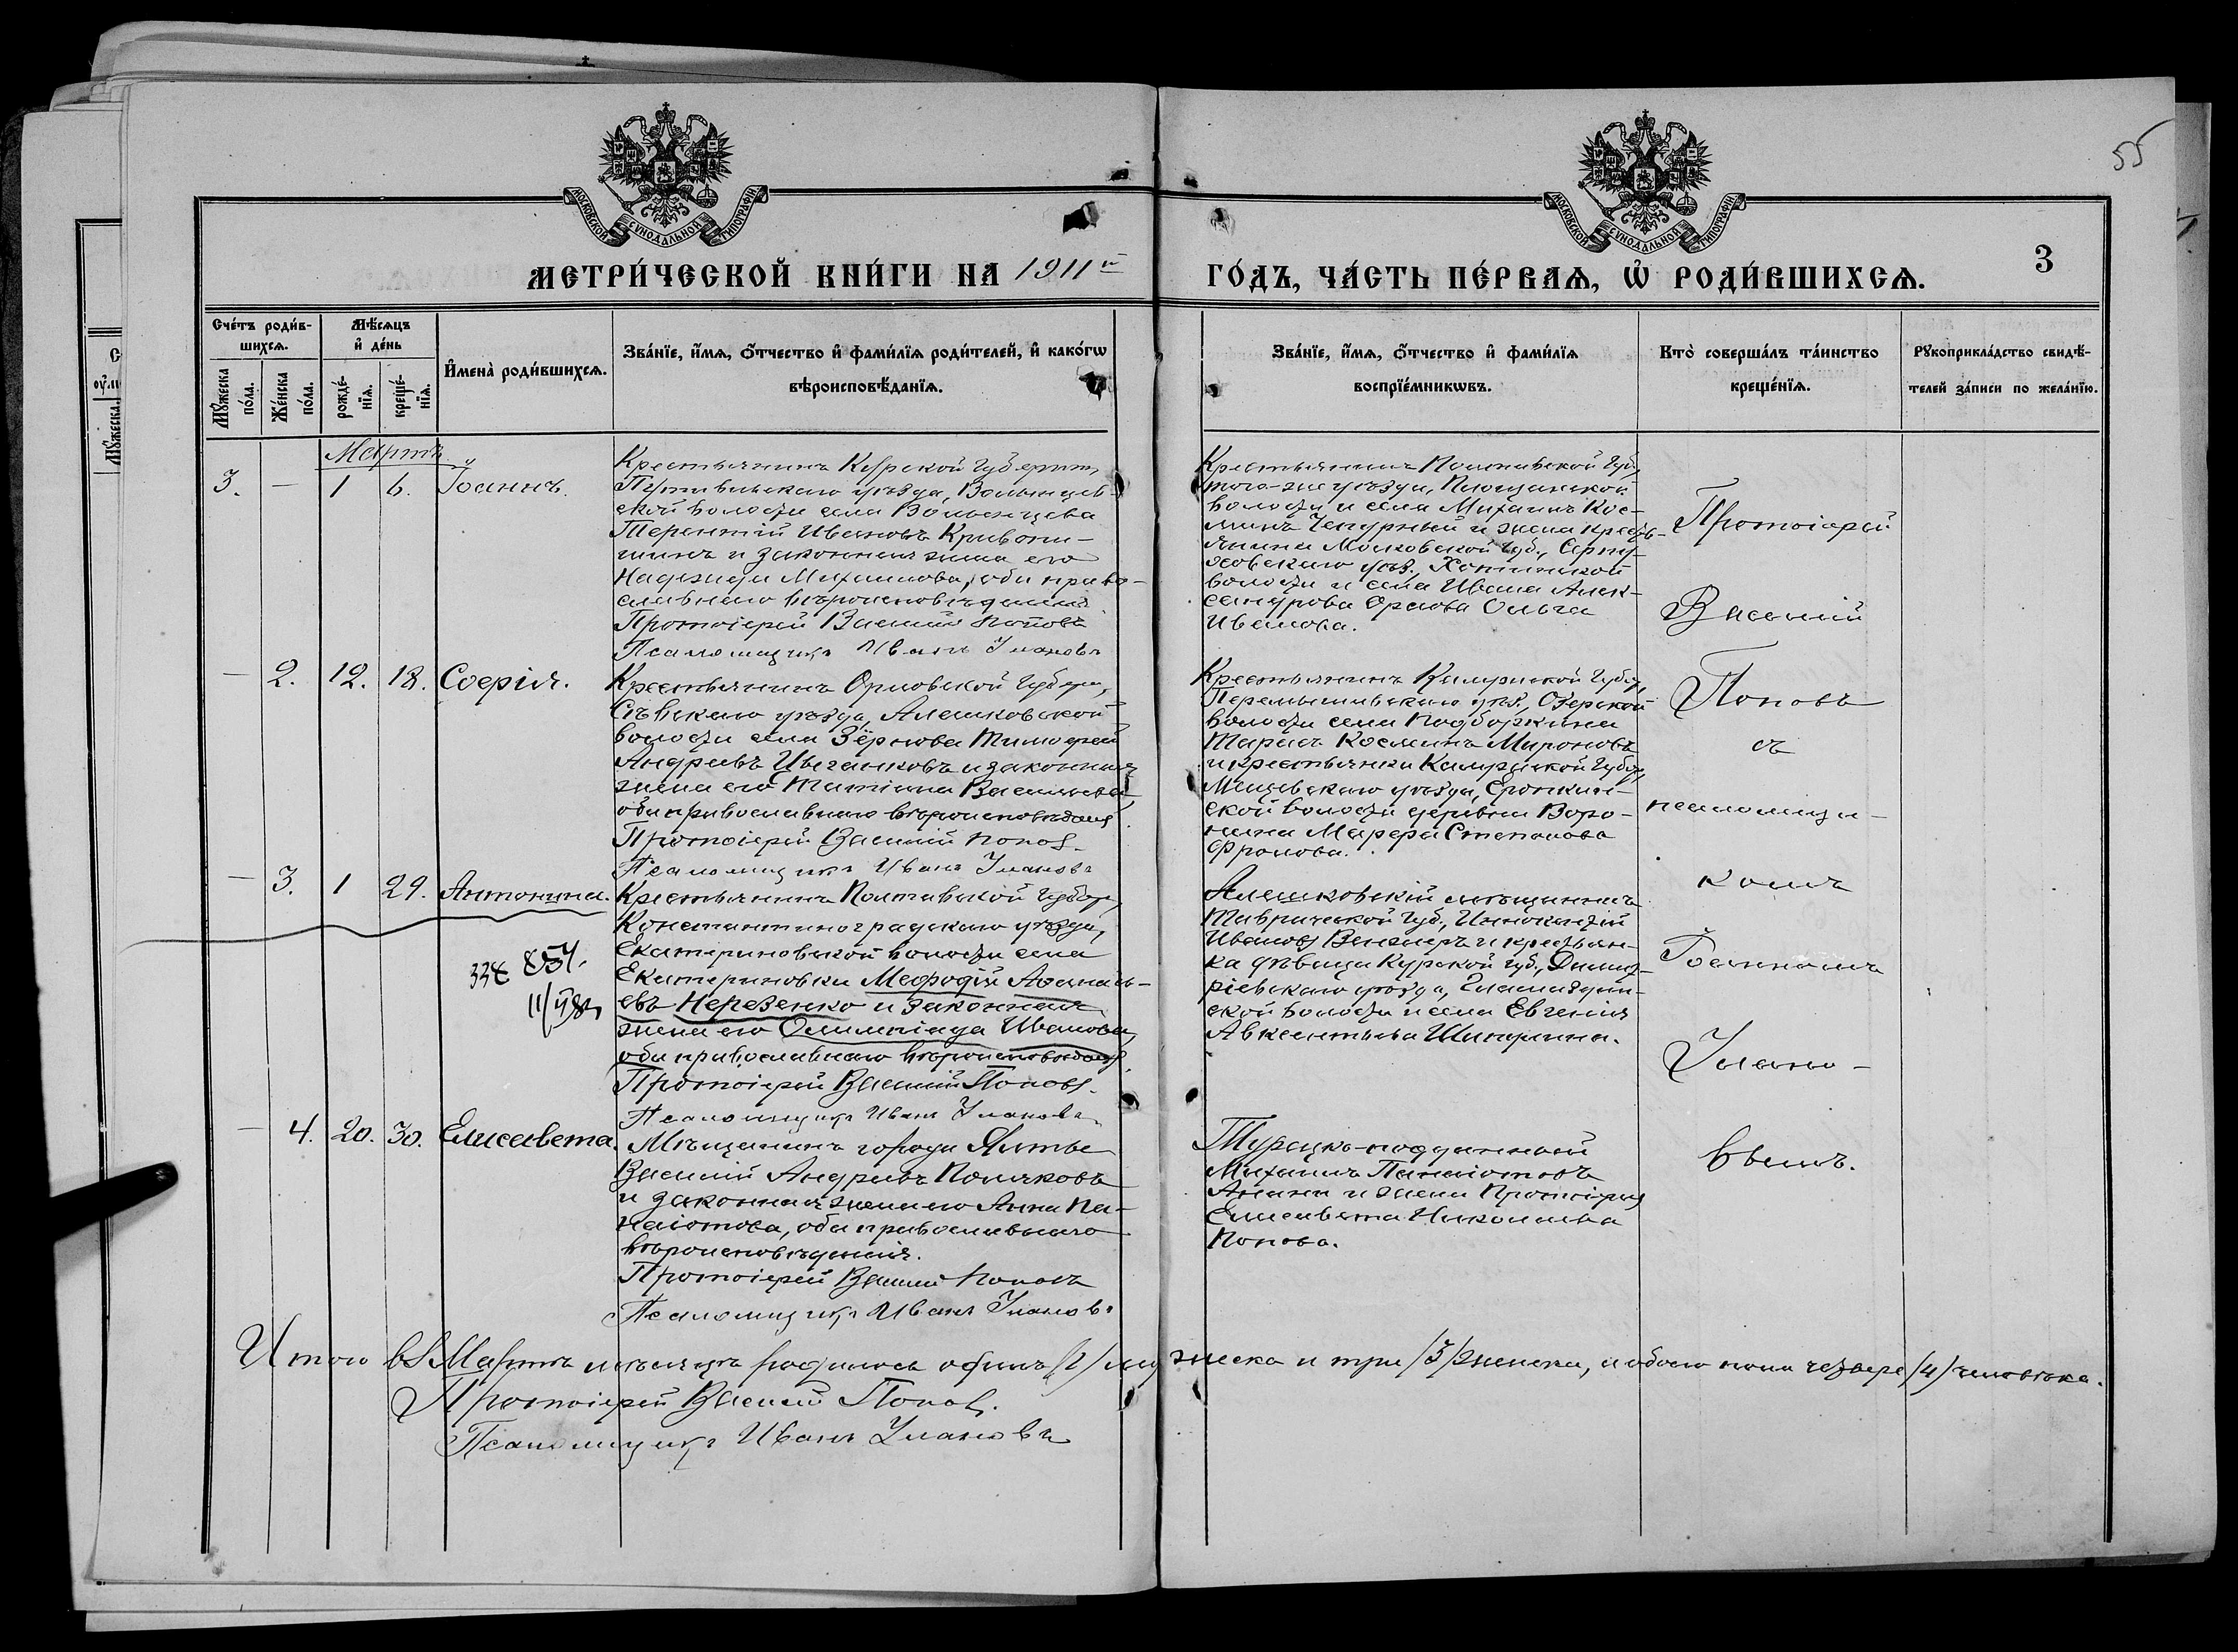 55
МОСКОВСКОЙ СѴНОДАЛЬНОЙ ТИПОГРАФІИ
МОСКОВСКОЙ СѴНОДАЛЬНОЙ ТИПОГРАФІИ
МЕТРИ́ЧЕСКОЙ КНИ́ГИ НА 1911й
ГО́ДЪ, ЧА́СТЬ ПЕ́РВАЯ, Ѡ҆ РОДИ́ВШИХСЯ.
3
Сче́тъ роди́в-
шихся.
Мꙋ́жеска
по́ла.
Же́нска
по́ла.
Мѣ́сяцъ
и҆ де́нь
рожде́-
нїя.
креще́-
нїя.
И҆мена̀ роди́вшихся.
Зва́нїе, и҆́мя, ѻ҆́тчество и҆ фами́лїя роди́телей, и҆ како́гѡ
вѣроисповѣ́данїя.
Зва́нїе, и҆́мя, ѻ҆́тчество и҆ фами́лїя
воспрїе́мникѡвъ.
Кто̀ соверша́лъ та́инство
креще́нїя.
Рꙋкоприкла́дство свидѣ́-
телей за́писи по жела́нїю.
Мартъ
3. — 1 6. Іоаннъ.
Крестьянинъ Курской губерніи,
Путивльскаго уѣзда, Волынцев-
ской волости села Волынцева
Терентій Ивановъ Кривоши-
шинъ и законная жена его
Надежда Михаилова, оба право-
славнаго вѣроисповѣданія.
Протоіерей Василій Поповъ
Псаломщикъ Иванъ Улановъ
Крестьянинъ Полтавской губ.,
того-же уѣзда,
волости и села Михаилъ Кос-
минъ Чепурный и жена кресть-
янина Московской губ., Серпу-
ховского уѣз., Хатунской
волости и села Ивана Алек-
сандрова Орлова Ольга
Иванова.
— 2. 12. 18. Софія.
Крестьянинъ Орловской губерн.,
Сѣвскаго уѣзда, Алешковской
волости села Зёрнова Тимофей
Андреевъ Цыганковъ и законная
жена его Татіана Васильева,
оба православнаго вѣроисповѣданія
Протоіерей Василій Поповъ
Псаломщикъ Иванъ Улановъ
Крестьянинъ Калужской губер.,
Перемышльскаго уѣз., Озерской
волости села Подборкина
Тарасъ Косминъ Мироновъ
и крестьянка Калужской губер.,
Мещовскаго уѣзда,
ской волости деревни Воро-
нина Марфа Степанова
Фролова.
— 3. 1 29. Антонина.
338 854.
Крестьянинъ Полтавской губер.,
Константиноградскаго уѣзда,
Екатериновской волости села
Екатериновки Меѳодій Аѳанась-
евъ Нерезенко и законная
жена его Олимпіада Иванова,
оба православнаго вѣроисповѣданія
Протоіерей Василій Поповъ.
Псаломщикъ Иванъ Улановъ
Алешковскій мѣщанинъ
Таврической губ., Иннокентій
Ивановъ и крестьян-
ка дѣвица Курской губ., Димит-
ріевскаго уѣзда,
ской волости и села Евгенія
Авксентьева Шатрина.
— 4. 20. 30. Елисавета.
Мѣщанинъ города Ялты
Василій Андреевъ Поляковъ
и законная жена его Анна Па-
наіотова, оба православнаго
вѣроисповѣданія.
Протоіерей Василій Поповъ
Псаломщикъ Иванъ Улановъ
Турецко-подданный
Михаилъ Панаіотовъ
и жена Протоіерея
Елисавета Николаева
Попова.
Протоіерей
Василій
Поповъ
съ
псаломщи-
комъ
Іоанномъ
Улано-
вымъ.
Итого въ Мартѣ мѣсяцѣ родилось одинъ /1/ мужеска и три /3/ женска, и обоего пола четыре /4/ человѣка.
Протоіерей Василій Поповъ.
Псаломщикъ Иванъ Улановъ